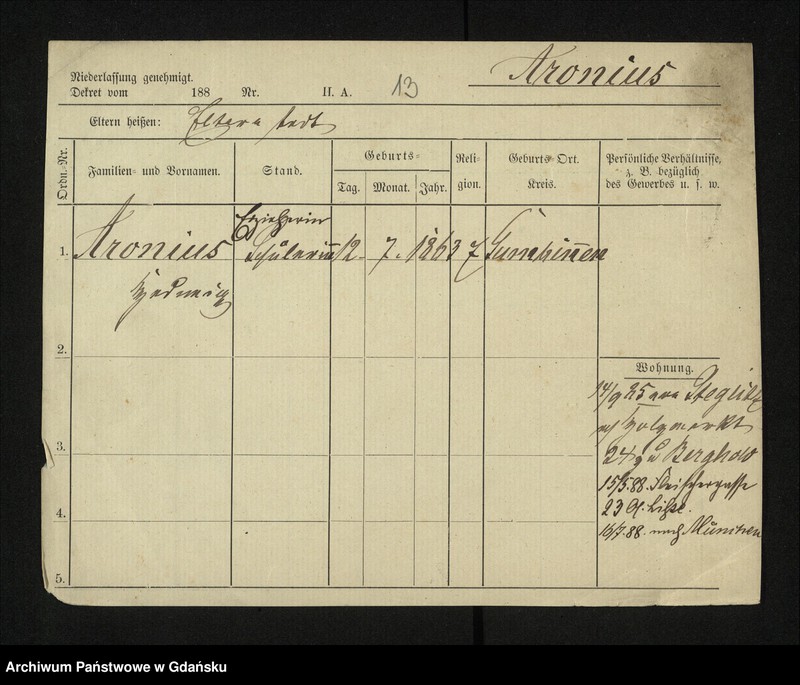 Aronius
Niederlassung genehmigt.
Dekret vom 188 Nr. II. A. 13
Eltern heißen: Eltern todt
Ordn.-Nr.
Familien- und Vornamen.
Stand.
Geburts-
Tag. Monat. Jahr.
Reli-
gion.
Geburts-Ort.
Kreis.
Persönliche Verhältnisse,
z. B. bezüglich
des Gewerbes u. s. w.
Erzieherin
1. Aronius Schülerin 12. 7. 1863 Gumbinnen
Hedwig
2.
Wohnung.
14/9 85 von Steglitz
Holzmarkt
3.
24 zu Berghold
15/5.88. Fleischergasse
4.
23
16/7.88. nach München
5.
Archiwum Państwowe w Gdańsku